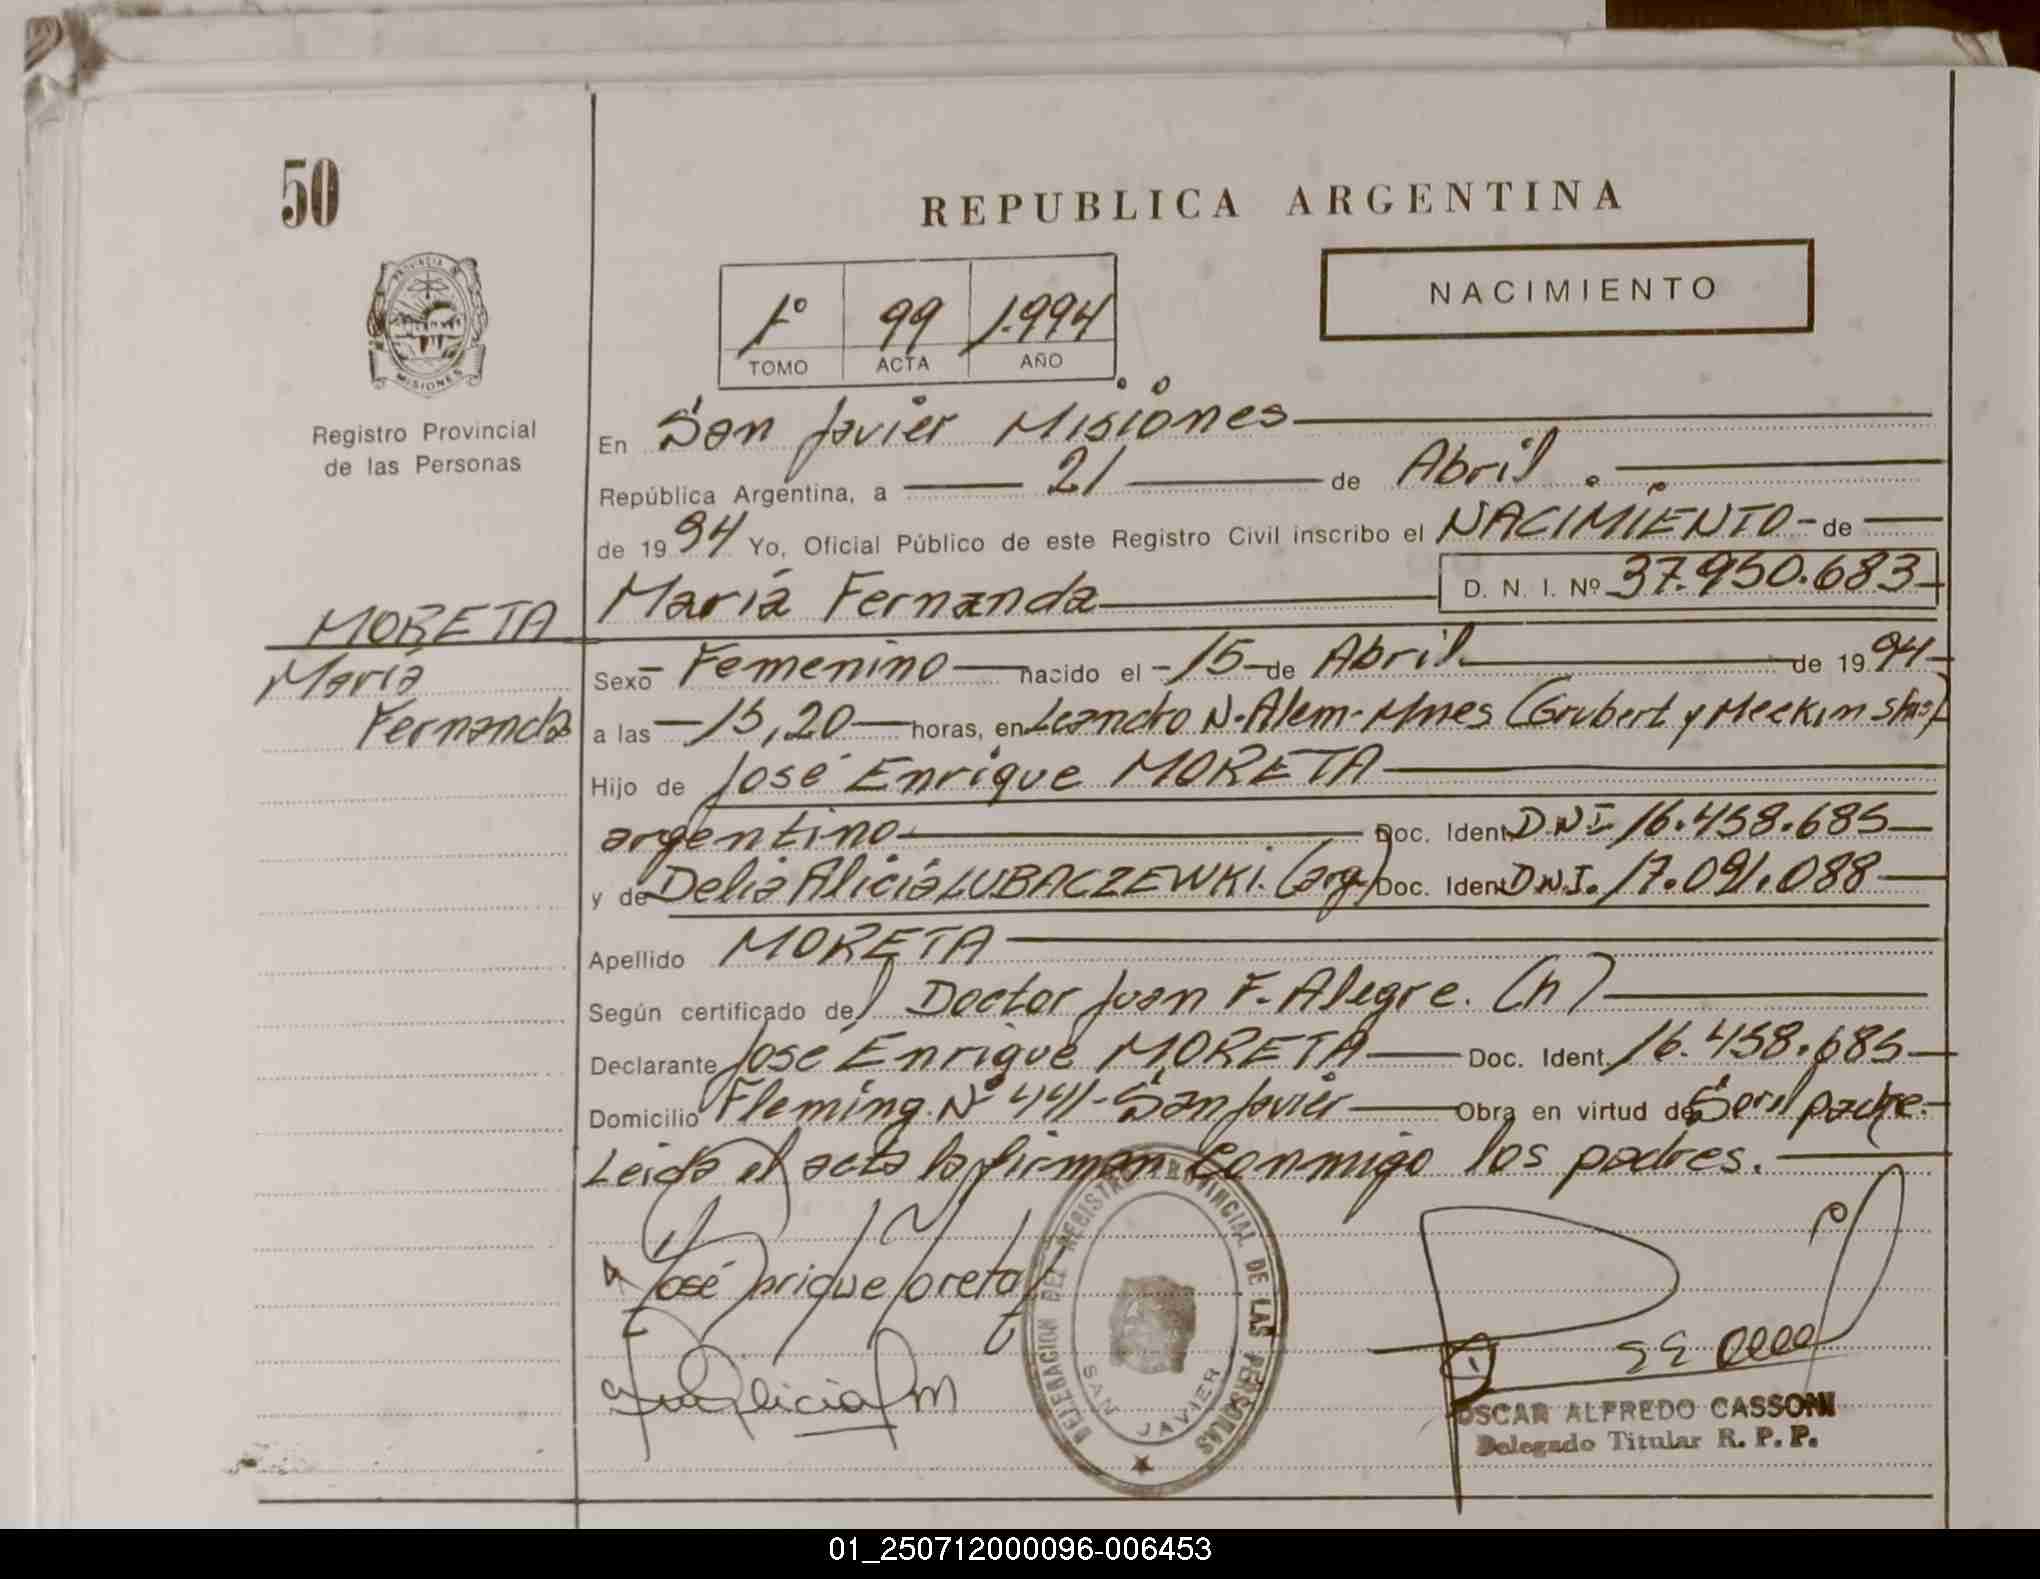 50
REPUBLICA ARGENTINA
NACIMIENTO
1º 99 1.994
TOMO ACTA AÑO
PROVINCIA DE
MISIONES
Registro Provincial
de las Personas
En San Javier Misiones
República Argentina, a 21 de Abril.
de 1994 Yo, Oficial Público de este Registro Civil inscribo el NACIMIENTO - de
María Fernanda D. N. I. Nº 37.950.683
MORETA
María
Fernanda
Sexo Femenino nacido el - 15 - de Abril de 1994
a las - 15,20 - horas, en Leandro N. Alem - Mnes (Grubert y Meckin
Hijo de José Enrique MORETA
argentino Doc. Ident. D.N.I. 16.458.685
y de Delia Alicia LUBACZEWKI. (arg) Doc. Ident. D.N.I. 17.091.088
Apellido MORETA
Según certificado del Doctor Juan F. Alegre. (h)
Declarante José Enrique MORETA Doc. Ident. 16.458.685
Domicilio Fleming Nº 441 - San Javier Obra en virtud de Ser el padre.
Leida el acta la firman conmigo los padres.
José Enrique Moreta
DELEGACION DEL REGISTRO PROVINCIAL DE LAS PERSONAS
SAN JAVIER
OSCAR ALFREDO CASSONI
Delegado Titular R. P. P.
01_250712000096-006453